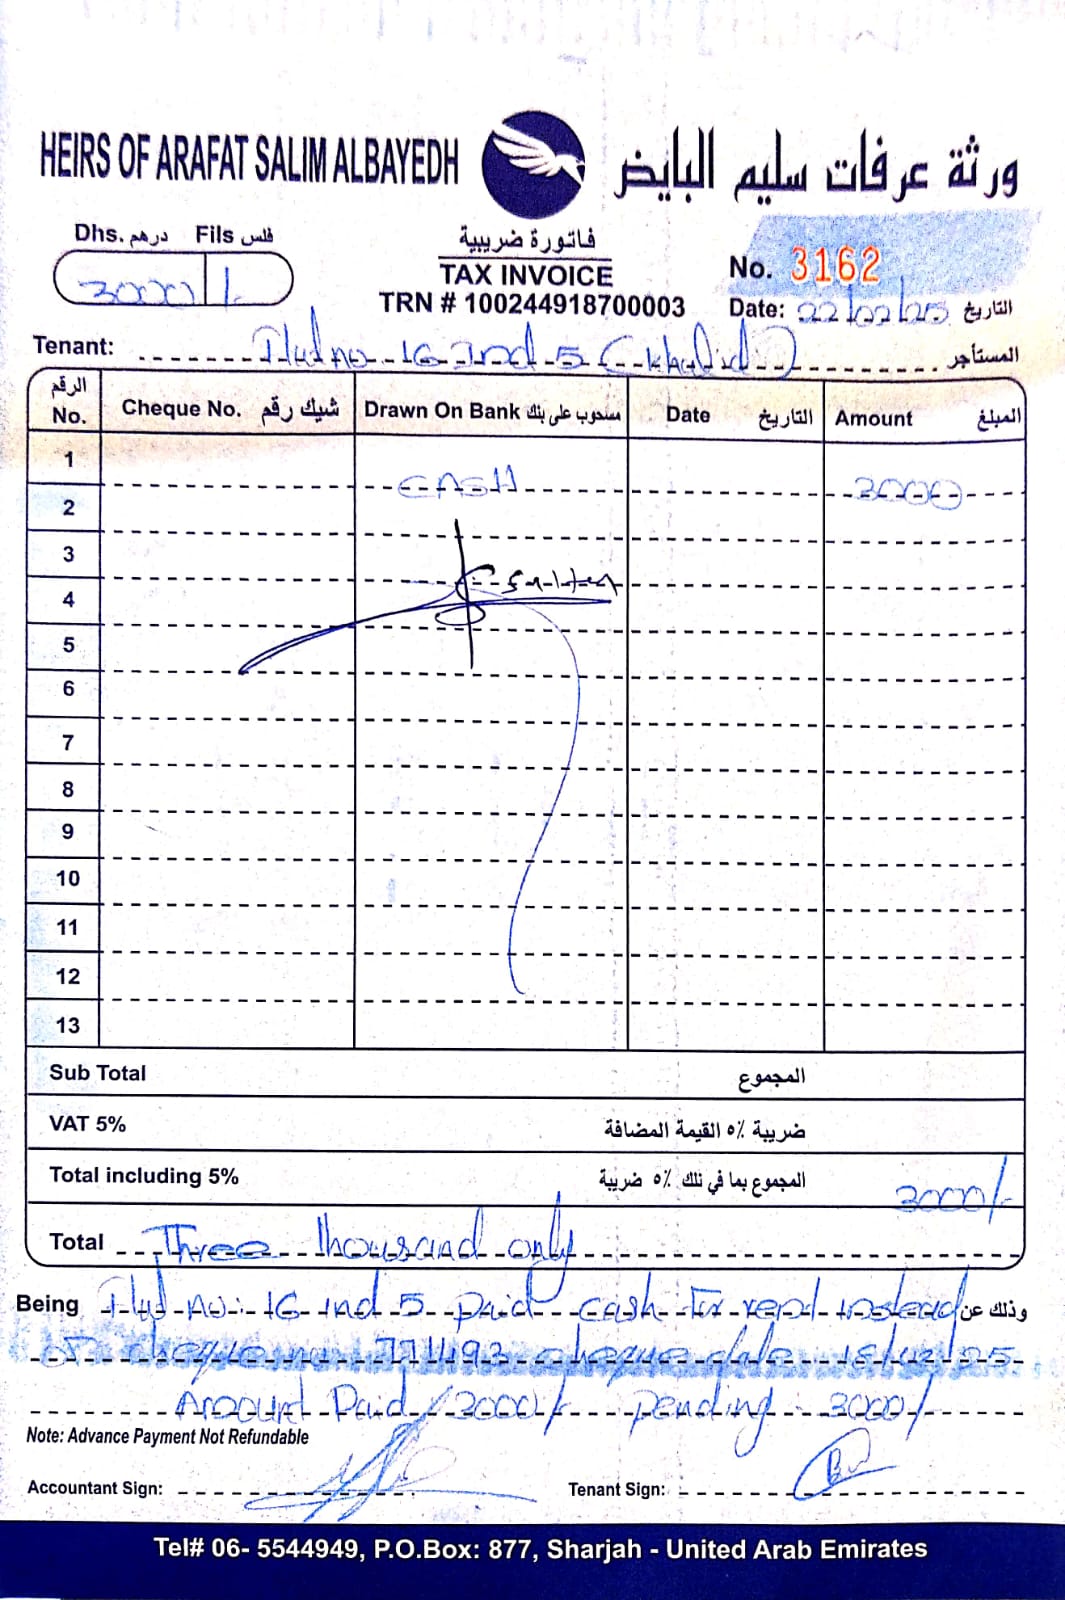 HEIRS OF ARAFAT SALIM ALBAYEDH ورثة عرفات سليم البايض
Dhs. درهم Fils فلس
3000 /-
فاتورة ضريبية
TAX INVOICE
TRN # 100244918700003
No. 3162
Date: 22/02/25 التاريخ
Tenant: Flat no 16 Ind 5 (Khalid) المستأجر
الرقم No. Cheque No. شيك رقم Drawn On Bank مسحوب على بنك Date التاريخ Amount المبلغ
1 CASH 3000
2
3
4
5
6
7
8
9
10
11
12
13
Sub Total المجموع
VAT 5% ضريبة ٥٪ القيمة المضافة
Total including 5% المجموع بما في ذلك ٥٪ ضريبة 3000/-
Total Three thousand only
Being Flat no: 16 ind 5 paid cash for rent instead وذلك عن
of cheque no 771493 cheque date 18/02/25.
Amount Paid 3000/- pending : 3000/-
Note: Advance Payment Not Refundable
Accountant Sign: Tenant Sign:
Tel# 06- 5544949, P.O.Box: 877, Sharjah - United Arab Emirates